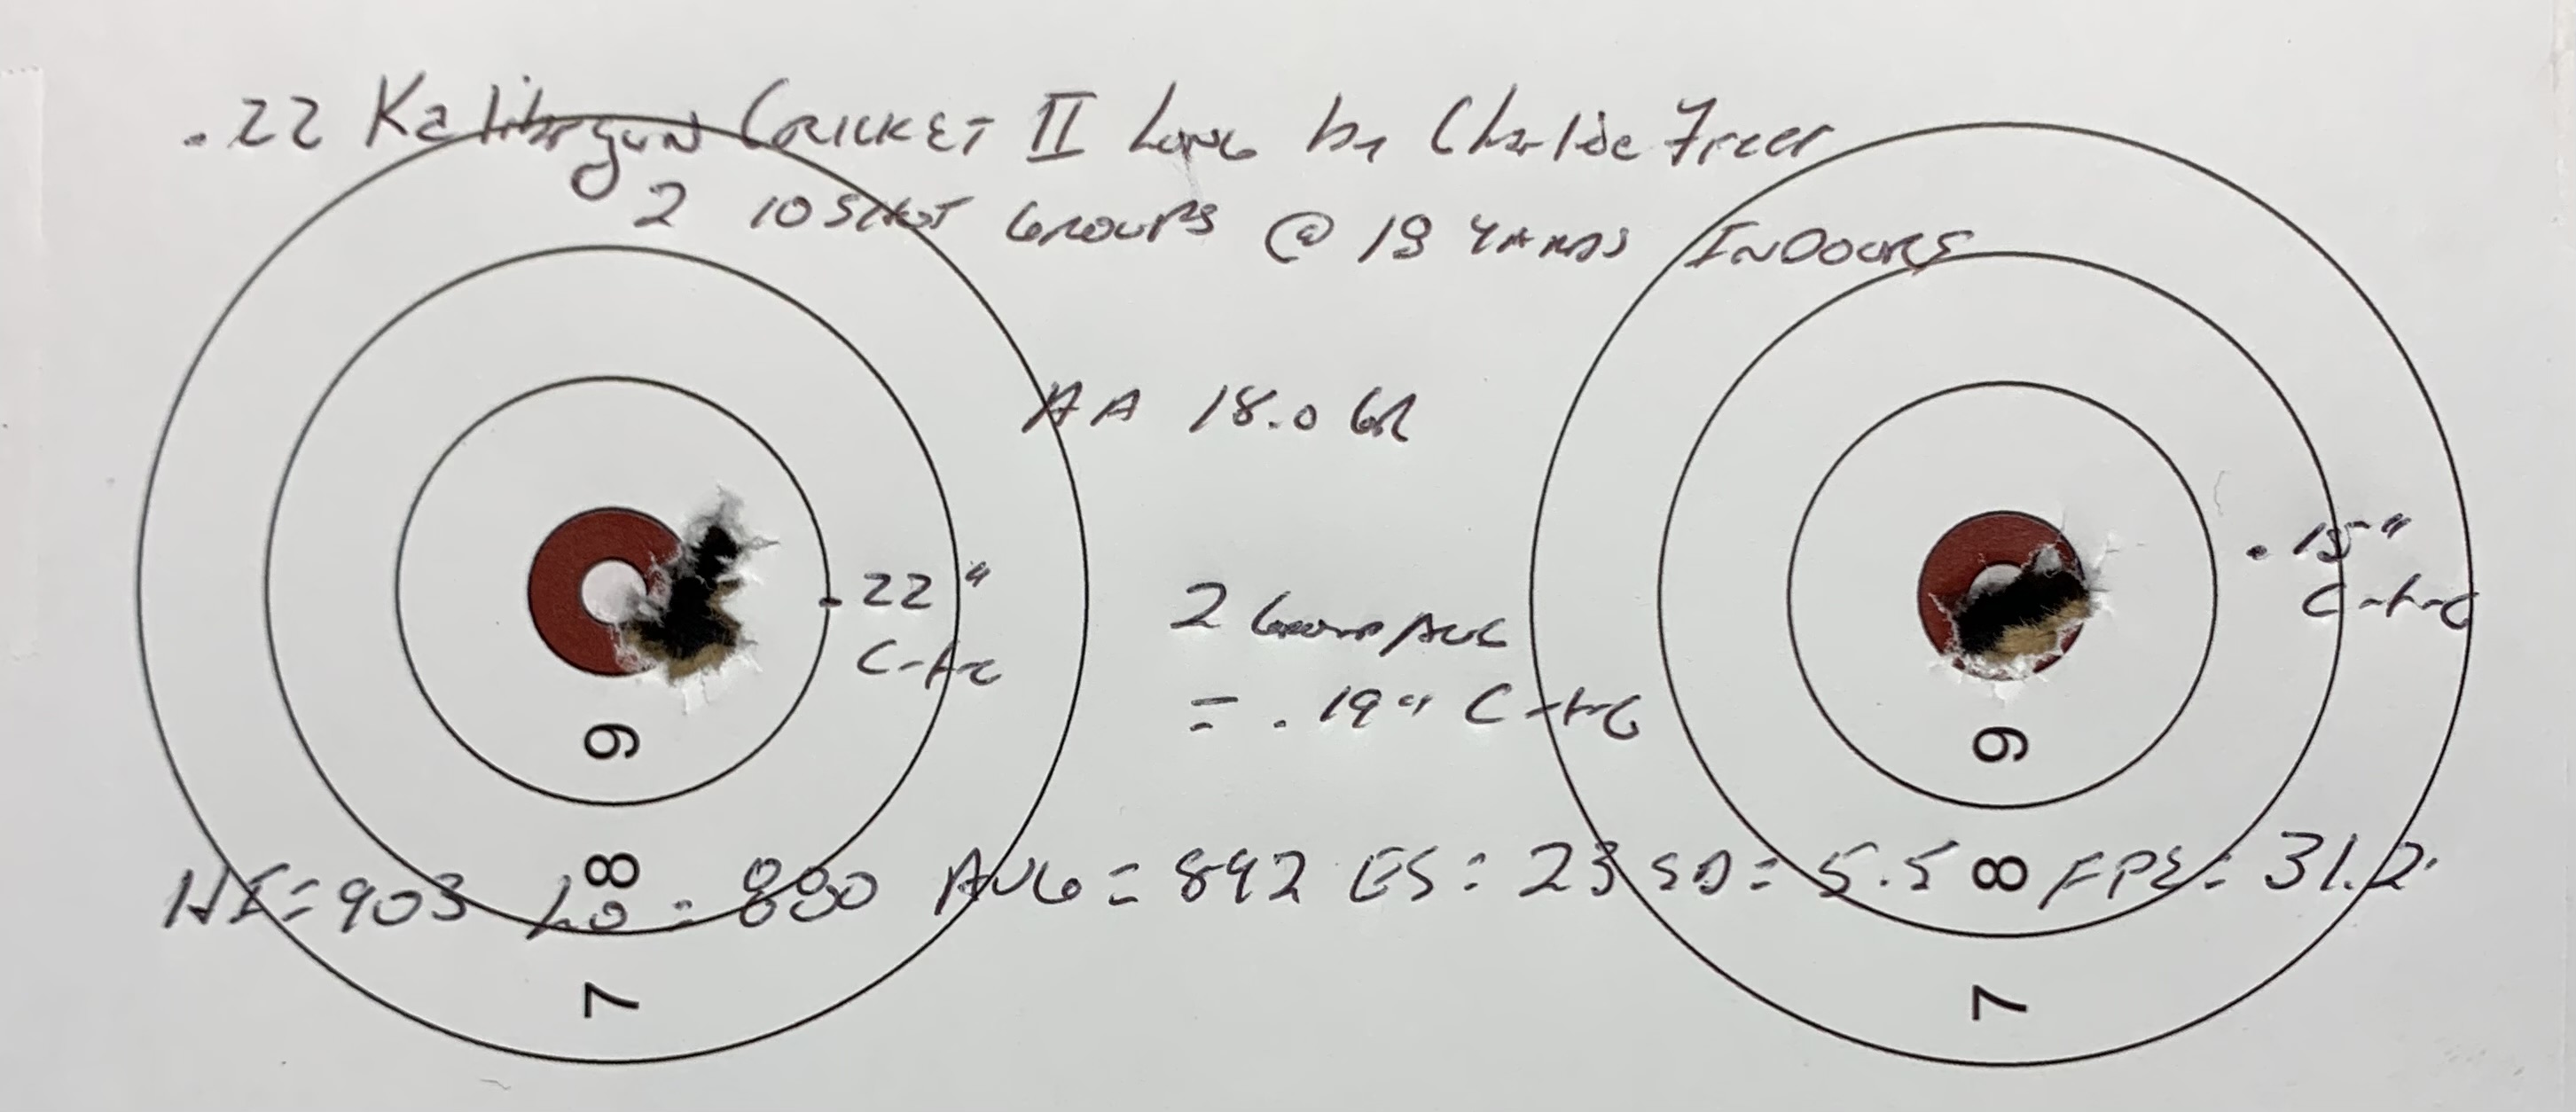 .22 Kalibrgun CRICKET II LONG by Charlie Freer
2 10 SHOT GROUPS @ 18 YARDS INDOORS
AA 18.0 GR
.22" C-t-C
.15" C-t-C
2 Group AVG
= .19" C-t-C
9
9
HI = 903 LO = 880 AVG = 892 ES = 23 SD = 5.5 FPE = 31.2
8
8
7
7